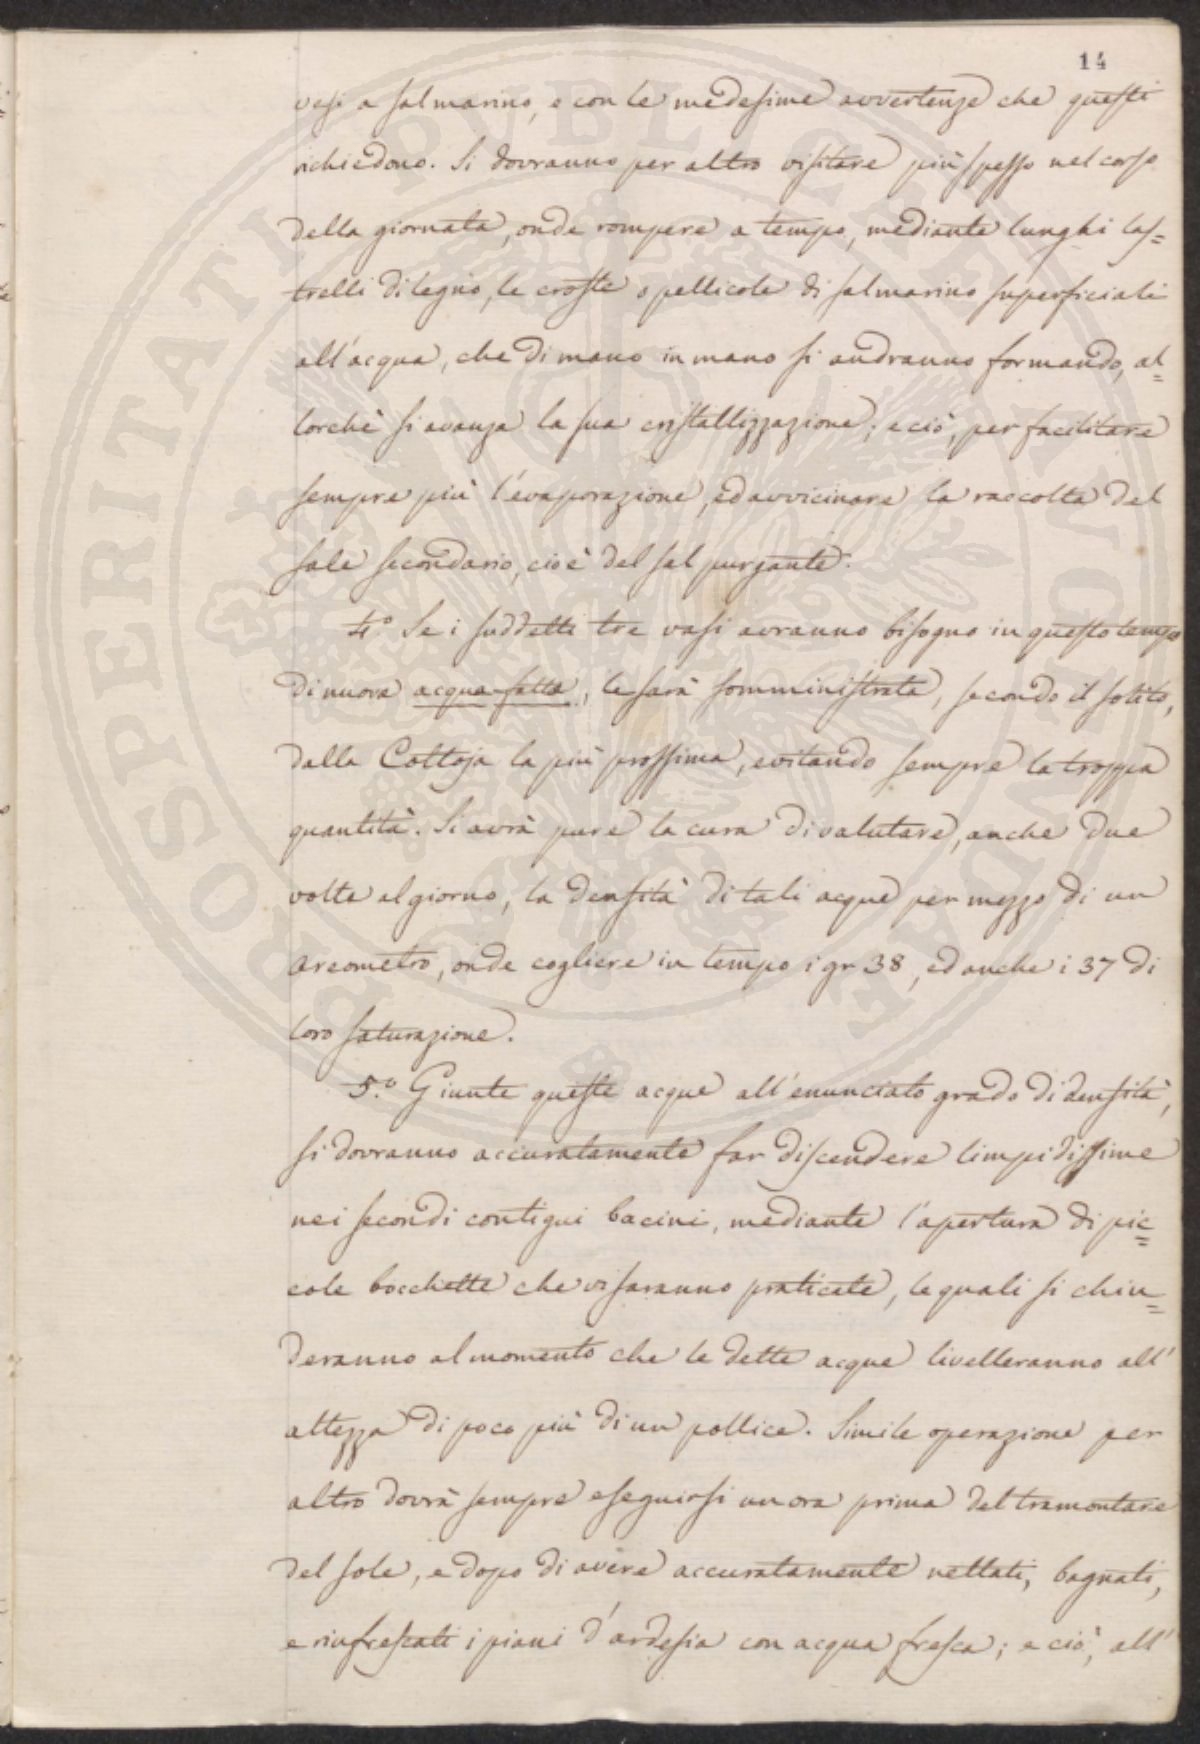 14
vasi a sal marino, e con le medesime avvertenze che questi
richiedono. Si dovranno per altro visitare più spesso nel corso
della giornata, onde rompere a tempo, mediante lunghi las=
trelli di legno, le croste o pellicole di sal marino superficiali
all'acqua, che di mano in mano si andranno formando, al=
lorchè si avanza la sua cristallizzazione; e ciò, per facilitare
sempre più l'evaporazione, ed avvicinare la raccolta del
sale secondario, cioè del sal purgante.
4.° Se i suddetti tre vasi avranno bisogno in questo tempo
di nuova acqua fatta, le sarà somministrata, secondo il solito,
dalla Cottoja la più prossima, evitando sempre la troppa
quantità. Si avrà pure la cura di valutare, anche due
volte al giorno, la densità di tali acque per mezzo di un
areometro, onde cogliere in tempo i gr 38, ed anche i 37 di
loro saturazione.
5.° Giunte queste acque all'enunciato grado di densità,
si dovranno accuratamente far discendere limpidissime
nei secondi contigui bacini, mediante l'apertura di pic=
cole bocchette che vi saranno praticate, le quali si chiu=
deranno al momento che le dette acque livelleranno all'
altezza di poco più di un pollice. Simile operazione per
altro dovrà sempre eseguirsi un ora prima del tramontare
del sole, e dopo di avere accuratamente nettati, bagnati,
e rinfrescati i piani d'ardesia con acqua fresca; e ciò, all'
PROSPERITATI PUBLICAE AUGENDAE